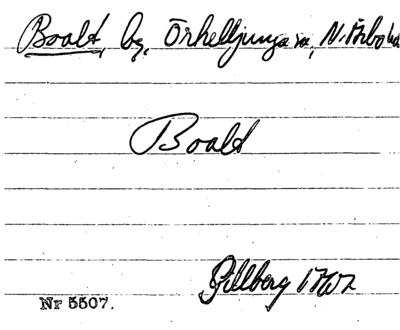 Boalt, by, Örkelljunga sn, N. Åsbo hd
Boalt
Gillberg
Nr 5507.